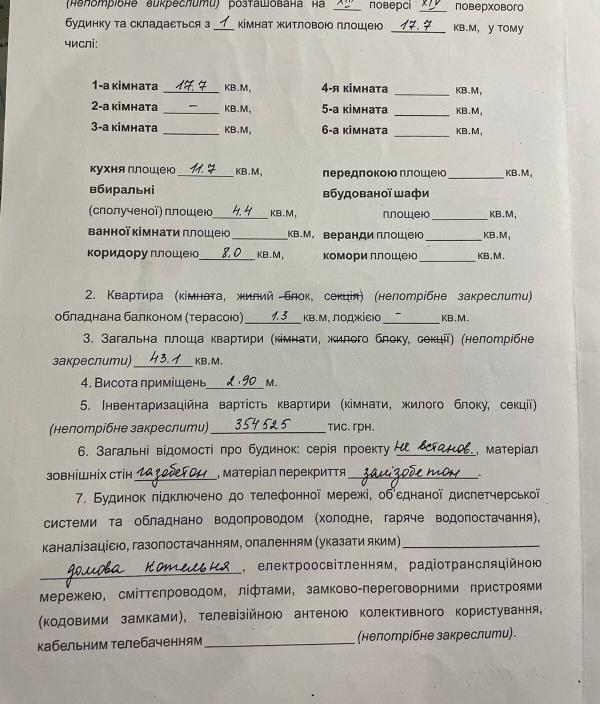 (непотрібне викреслити) розташована на XIII поверсі XIV поверхового
будинку та складається з 1 кімнат житловою площею 17.7 кв.м, у тому
числі:
1-а кімната 17.7 кв.м, 4-я кімната ______ кв.м,
2-а кімната - кв.м, 5-а кімната ______ кв.м,
3-а кімната ______ кв.м, 6-а кімната ______ кв.м,
кухня площею 11.7 кв.м, передпокою площею ______ кв.м,
вбиральні вбудованої шафи
(сполученої) площею 4.4 кв.м, площею ______ кв.м,
ванної кімнати площею ______ кв.м, веранди площею ______ кв.м,
коридору площею 8.0 кв.м, комори площею ______ кв.м.
2. Квартира (кімната, жилий блок, секція) (непотрібне закреслити)
обладнана балконом (терасою) 1.3 кв.м, лоджією - кв.м.
3. Загальна площа квартири (кімнати, жилого блоку, секції) (непотрібне
закреслити) 43.1 кв.м.
4. Висота приміщень 2.90 м.
5. Інвентаризаційна вартість квартири (кімнати, жилого блоку, секції)
(непотрібне закреслити) 354525 тис. грн.
6. Загальні відомості про будинок: серія проекту не встанов., матеріал
зовнішніх стін газобетон, матеріал перекриття залізобетон.
7. Будинок підключено до телефонної мережі, об'єднаної диспетчерської
системи та обладнано водопроводом (холодне, гаряче водопостачання),
каналізацією, газопостачанням, опаленням (указати яким) ______
домова котельня, електроосвітленням, радіотрансляційною
мережею, сміттєпроводом, ліфтами, замково-переговорними пристроями
(кодовими замками), телевізійною антеною колективного користування,
кабельним телебаченням ______ (непотрібне закреслити).